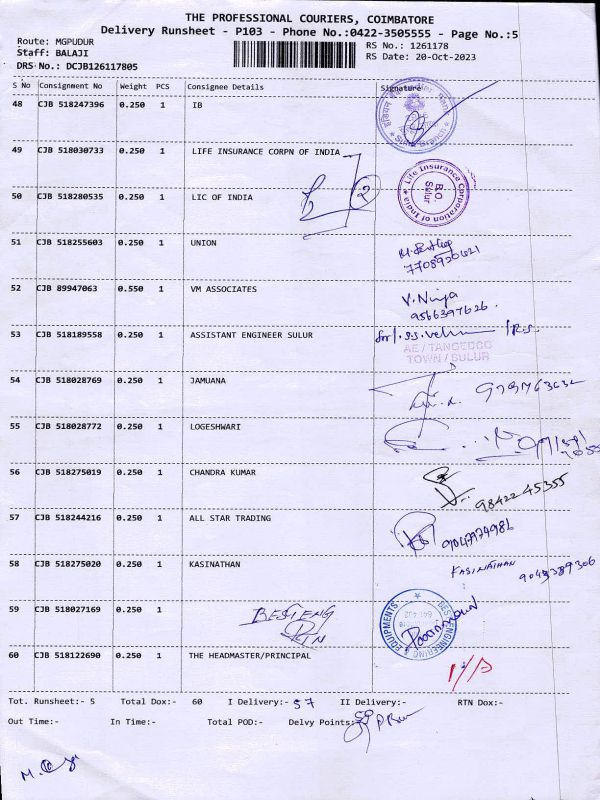 THE PROFESSIONAL COURIERS, COIMBATORE
Delivery Runsheet - P103 - Phone No.:0422-3505555 - Page No.:5
Route: MGPUDUR
Staff: BALAJI
DRS No.: DCJB126117805
RS No.: 1261178
RS Date: 20-Oct-2023
S No Consignment No Weight PCS Consignee Details Signature
48 CJB 518247396 0.250 1 IB
49 CJB 518030733 0.250 1 LIFE INSURANCE CORPN OF INDIA
Life Insurance Corporation of India
B.O.
Sulur
50 CJB 518280535 0.250 1 LIC OF INDIA
2
51 CJB 518255603 0.250 1 UNION
52 CJB 89947063 0.550 1 VM ASSOCIATES
9566397626
53 CJB 518189558 0.250 1 ASSISTANT ENGINEER SULUR
AE / TANGEDCO
TOWN / SULUR
54 CJB 518028769 0.250 1 JAMUANA
55 CJB 518028772 0.250 1 LOGESHWARI
56 CJB 518275019 0.250 1 CHANDRA KUMAR
98422 45355
57 CJB 518244216 0.250 1 ALL STAR TRADING
58 CJB 518275020 0.250 1 KASINATHAN
KASINATHAN
59 CJB 518027169 0.250 1
BEST ENG
BEST ENGINEERING & EQUIPMENTS
60 CJB 518122690 0.250 1 THE HEADMASTER/PRINCIPAL
Tot. Runsheet:- 5 Total Dox:- 60 I Delivery:- 57 II Delivery:- RTN Dox:-
Out Time:- In Time:- Total POD:- Delvy Points:-